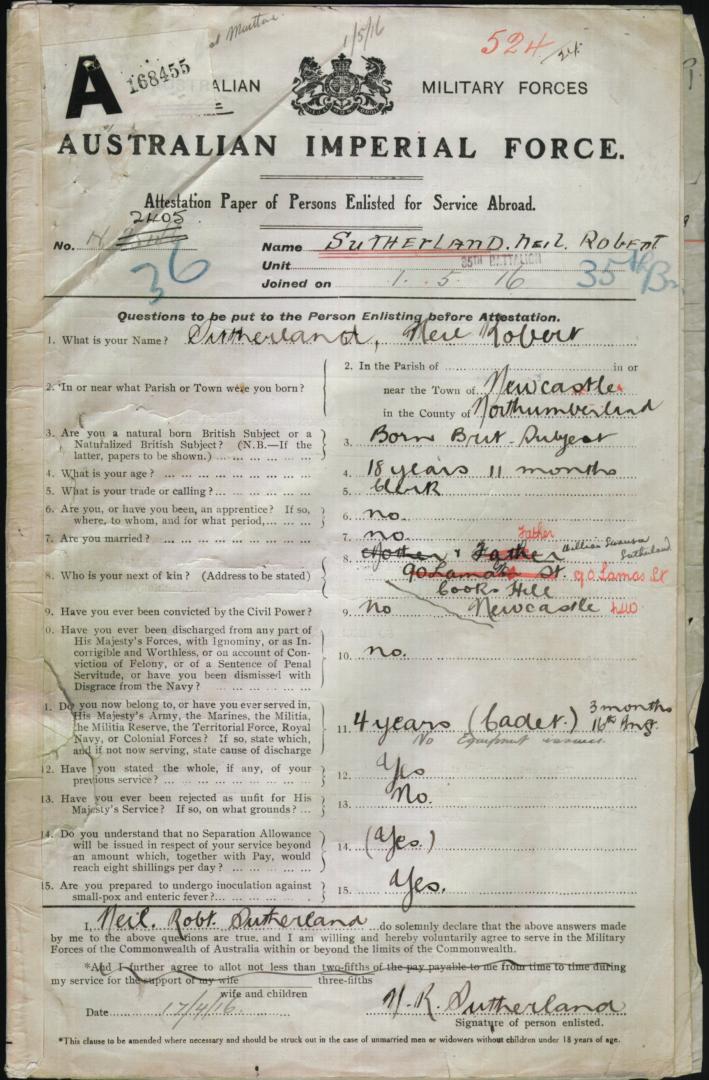 1/5/16
524
A 168455
AUSTRALIAN MILITARY FORCES
AUSTRALIAN IMPERIAL FORCE.
Attestation Paper of Persons Enlisted for Service Abroad.
2405
No.
36
Name SUTHERLAND. Neil. Robert
Unit 35TH BATTALION 35th Bn
Joined on 1. 5. 16
Questions to be put to the Person Enlisting before Attestation.
1. What is your Name? Sutherland, Neil Robert
2. In or near what Parish or Town were you born?
2. In the Parish of in or
near the Town of Newcastle
in the County of Northumberland
3. Are you a natural born British Subject or a
Naturalized British Subject? (N.B.—If the
latter, papers to be shown.)
3. Born Brit. Subject
4. What is your age?
4. 18 years 11 months
5. What is your trade or calling?
5. Clerk
6. Are you, or have you been, an apprentice? If so,
where, to whom, and for what period,
6. no.
7. Are you married?
7. no.
8. Who is your next of kin? (Address to be stated)
Father
8. Mother & Father William Sutherland
90 Laman St. 90 Lamas St
Cooks Hill
Newcastle NSW
9. Have you ever been convicted by the Civil Power?
9. no
0. Have you ever been discharged from any part of
His Majesty's Forces, with Ignominy, or as In-
corrigible and Worthless, or on account of Con-
viction of Felony, or of a Sentence of Penal
Servitude, or have you been dismissed with
Disgrace from the Navy?
10. no.
1. Do you now belong to, or have you ever served in,
His Majesty's Army, the Marines, the Militia,
the Militia Reserve, the Territorial Force, Royal
Navy, or Colonial Forces? If so, state which,
and if not now serving, state cause of discharge
11. 4 years (Cadet.) 3 months
16th Inf.
No Equipment issued.
12. Have you stated the whole, if any, of your
previous service?
12. Yes
13. Have you ever been rejected as unfit for His
Majesty's Service? If so, on what grounds?
13. No.
14. Do you understand that no Separation Allowance
will be issued in respect of your service beyond
an amount which, together with Pay, would
reach eight shillings per day?
14. (Yes.)
15. Are you prepared to undergo inoculation against
small-pox and enteric fever?
15. Yes.
I, Neil. Robt. Sutherland do solemnly declare that the above answers made
by me to the above questions are true, and I am willing and hereby voluntarily agree to serve in the Military
Forces of the Commonwealth of Australia within or beyond the limits of the Commonwealth.
*And I further agree to allot not less than two-fifths of the pay payable to me from time to time during
my service for the support of my wife three-fifths
wife and children
Date 17/4/16. N. R. Sutherland
Signature of person enlisted.
*This clause to be amended where necessary and should be struck out in the case of unmarried men or widowers without children under 18 years of age.